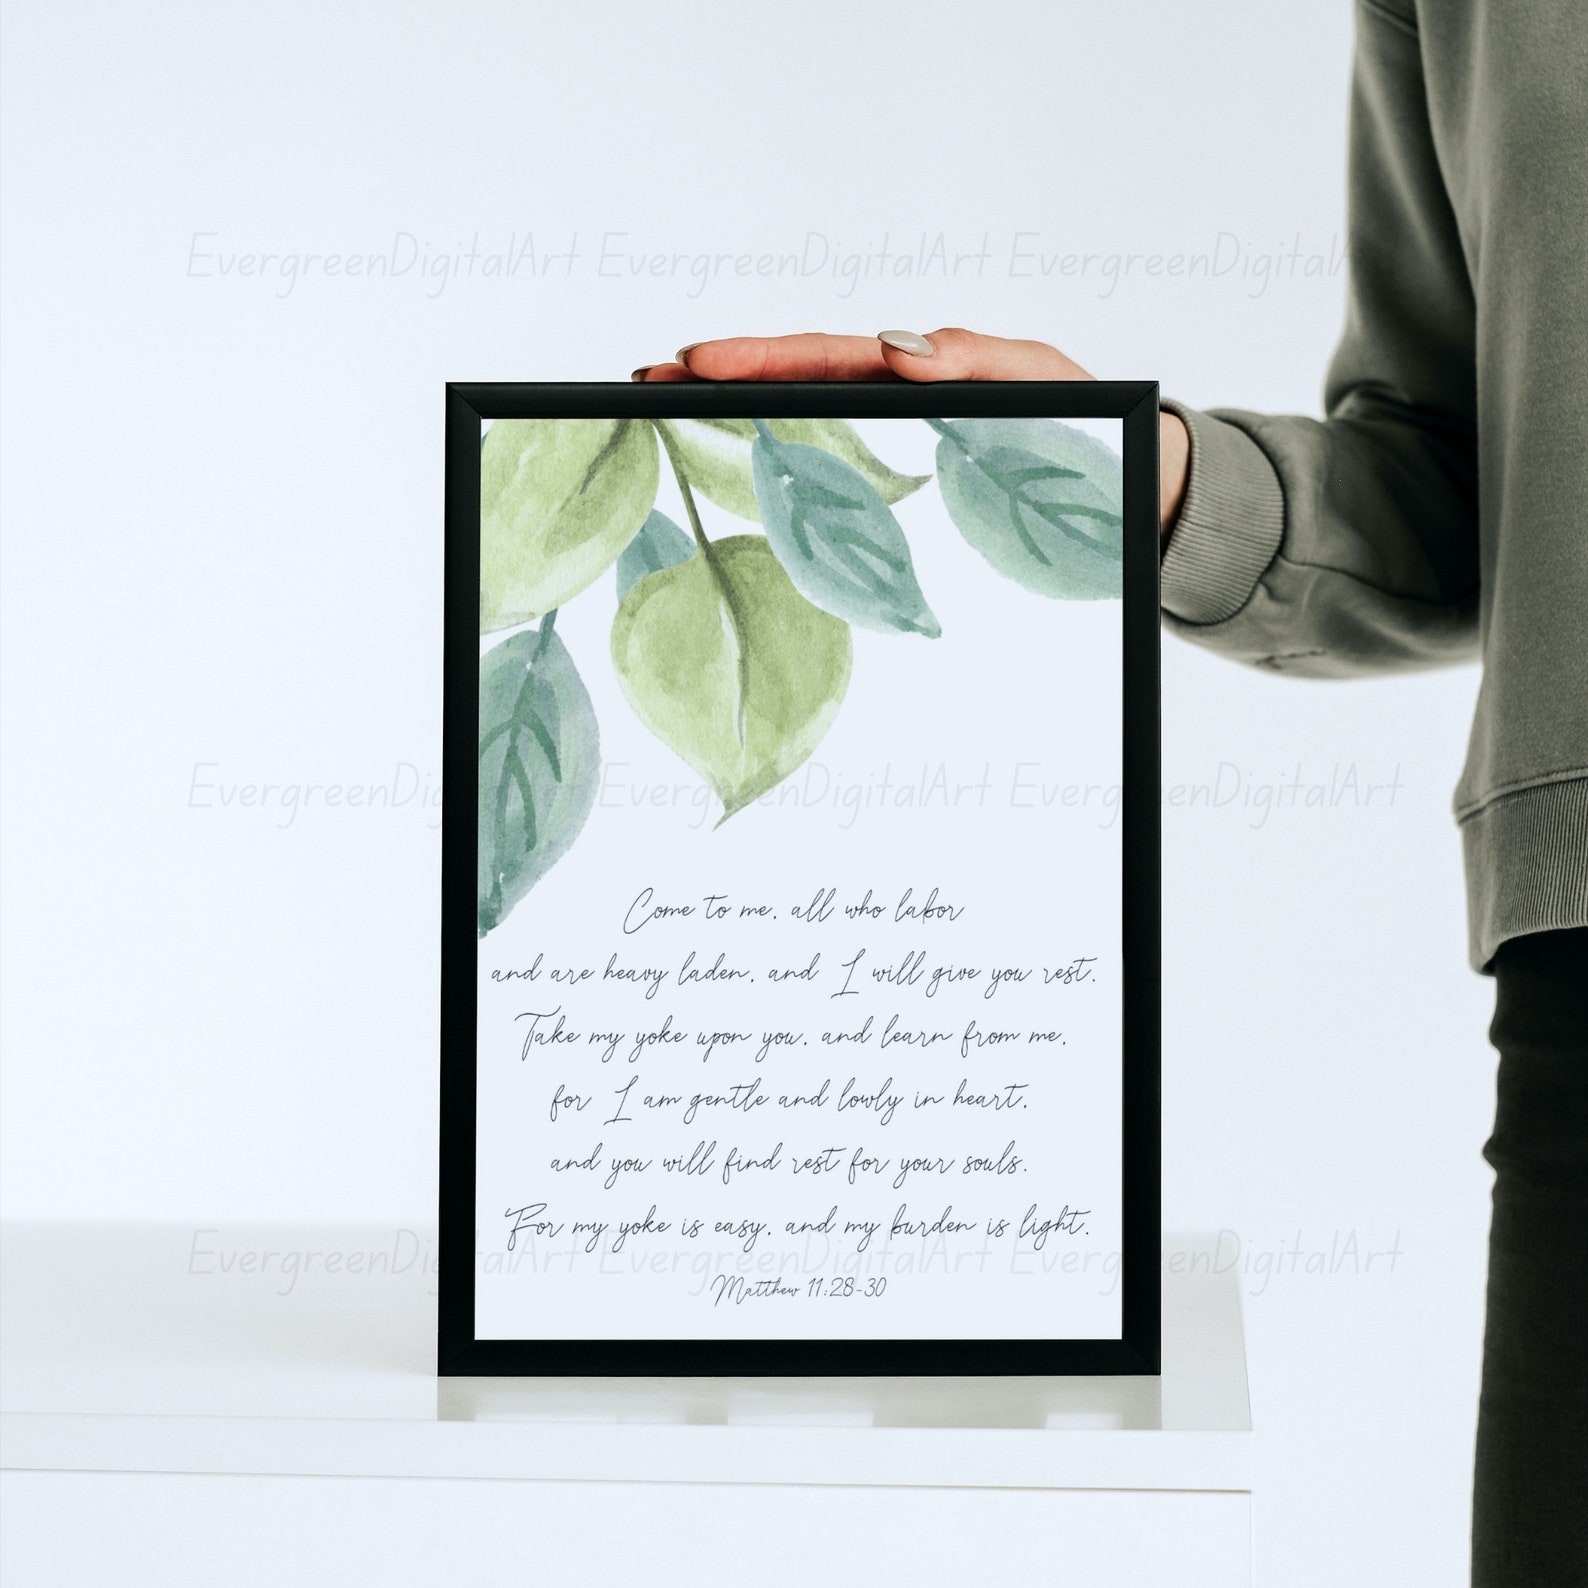 EvergreenDigitalArt EvergreenDigitalArt EvergreenDigitalA
EvergreenDig EvergreenDigitalArt EvergreenDigitalArt
Come to me, all who labor
and are heavy laden, and I will give you rest.
Take my yoke upon you, and learn from me,
for I am gentle and lowly in heart,
and you will find rest for your souls.
For my yoke is easy, and my burden is light.
EvergreenDigitalArt EvergreenDigitalArt EvergreenDigitalArt
Matthew 11:28-30